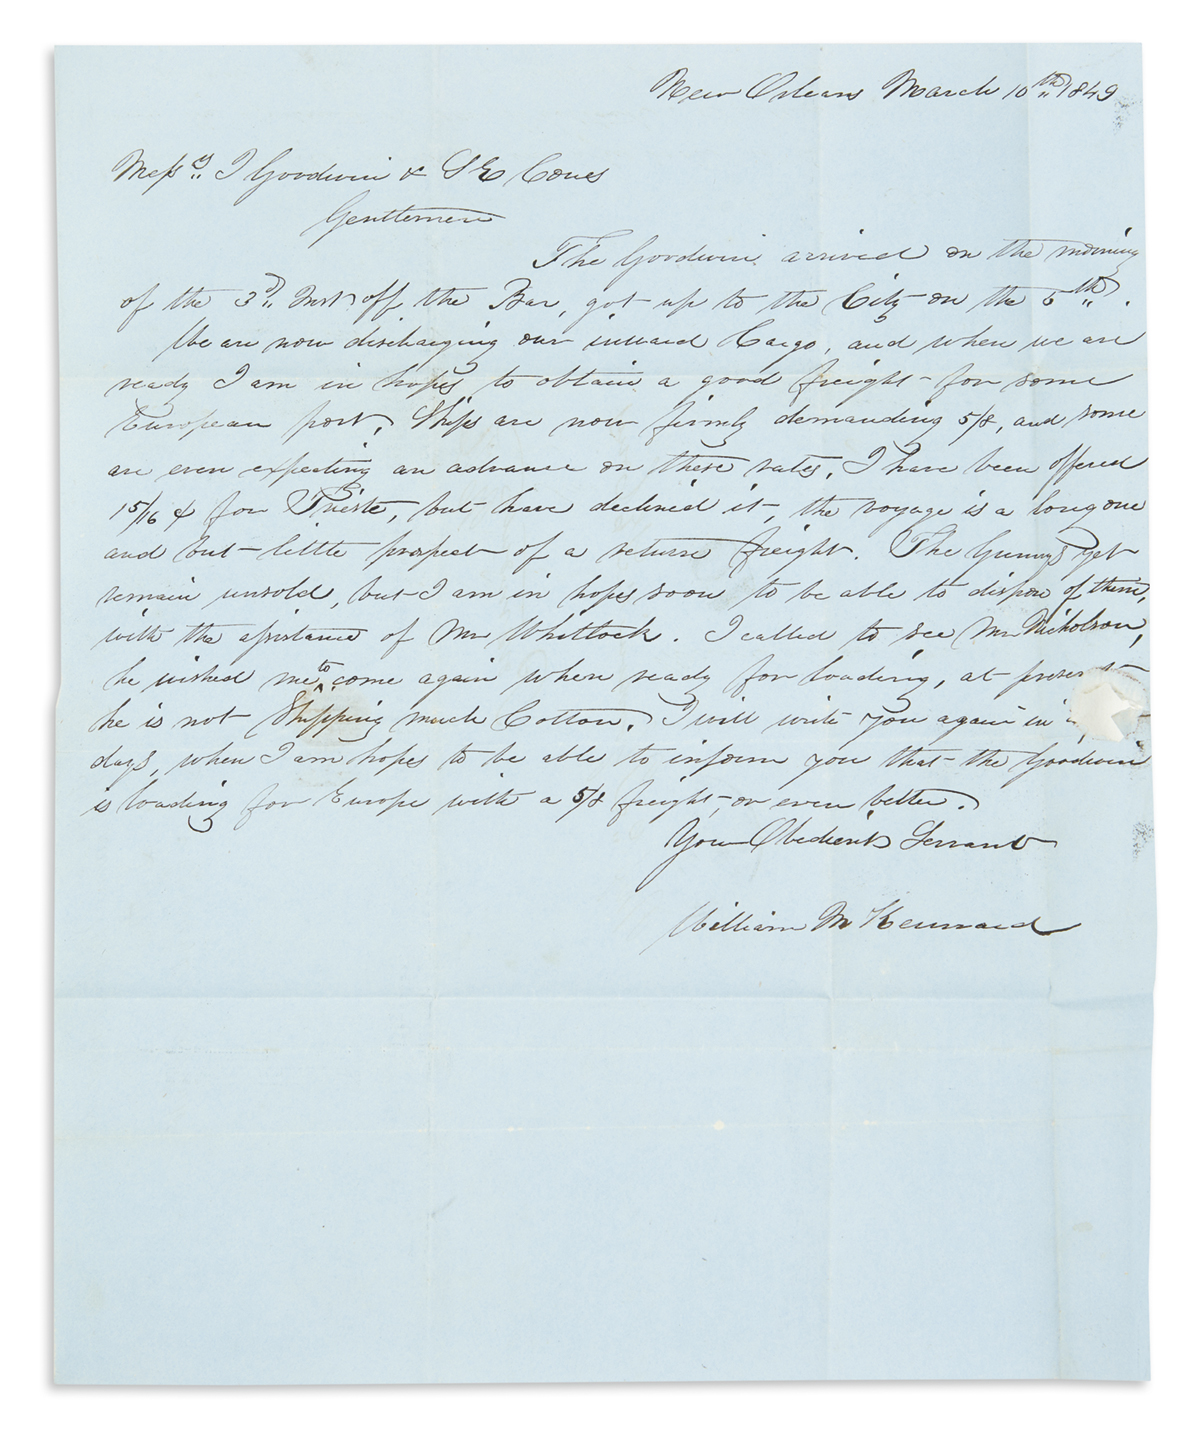 New Orleans March 10th 1849
Messrs I Goodwin & S E Coues
Gentlemen
The Goodwin arrived on the morning
of the 3d Inst off the Bar, got up to the City on the 5th.
We are now discharging our inward Cargo, and when we are
ready I am in hopes to obtain a good freight for some
European port. Ships are now firmly demanding 5/8, and some
are even expecting an advance on these rates. I have been offered
15/16 for Trieste, but have declined it, the voyage is a long one
and but little prospect of a return freight. The Gunnys yet
remain unsold, but I am in hopes soon to be able to dispose of them,
with the assistance of Mr Whitlock. I called to see Mr Nicholson,
he wished me to come again when ready for loading, at present
he is not Shipping much Cotton. I will write you again in a
days, when I am hopes to be able to inform you that the Goodwin
is loading for Europe with a 5/8 freight, or even better.
Your Obedient Servant
William M Kennard